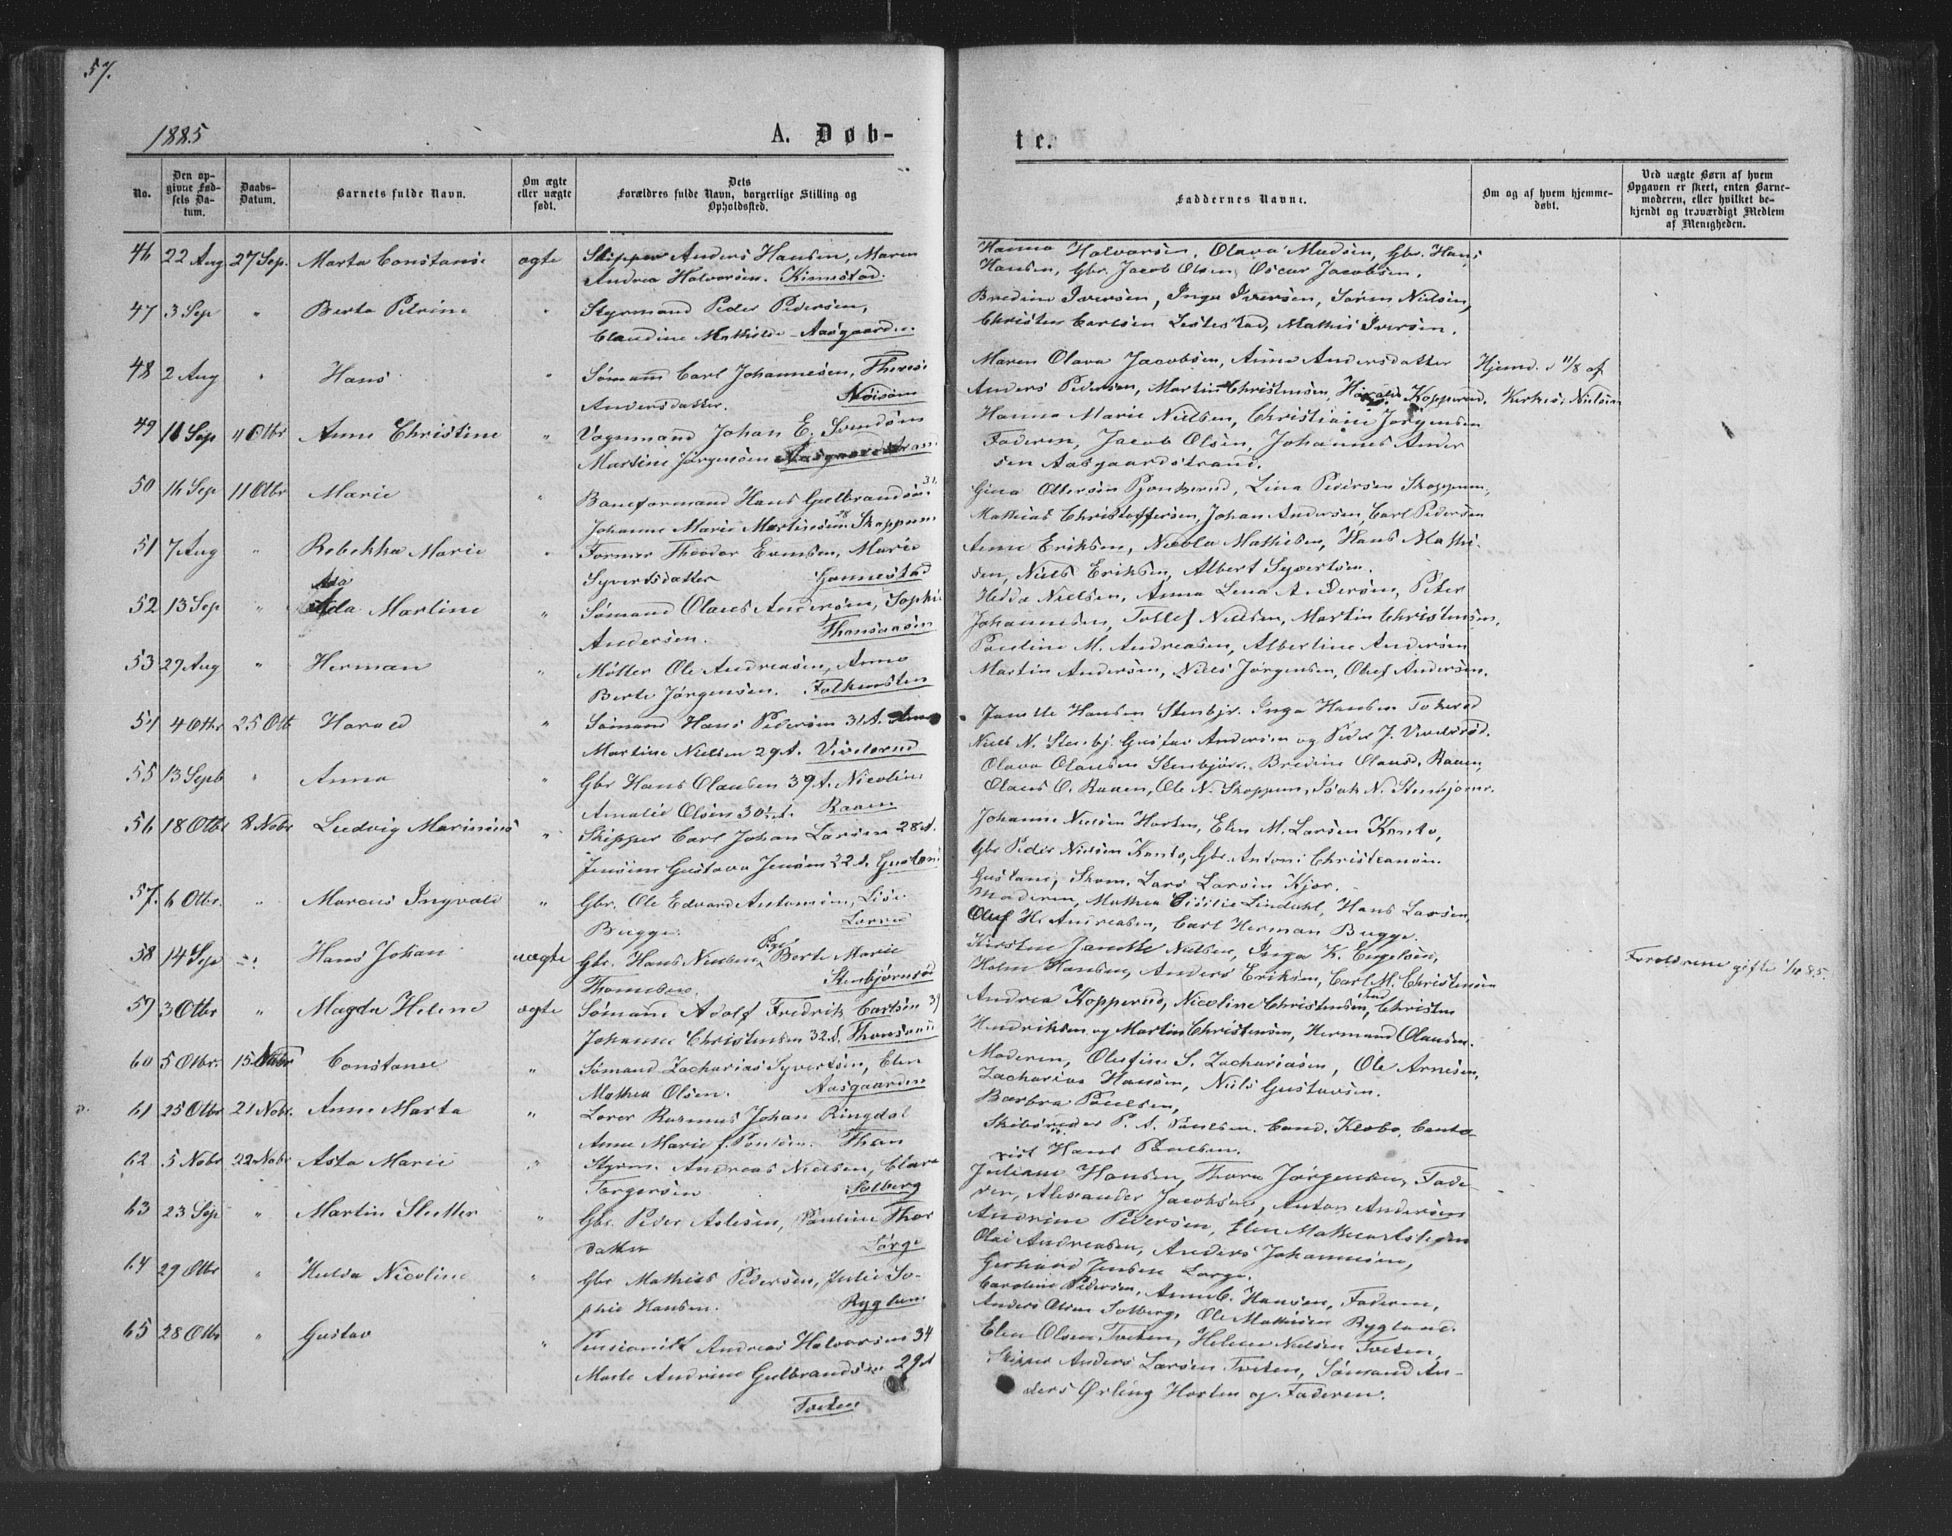 57.
1885
A. Døb-
te.
No.
Den opgivne Fødsels Datum.
Daabs-Datum.
Barnets fulde Navn.
Om ægte eller uægte født.
Dets Forældres fulde Navn, borgerlige Stilling og Opholdssted.
Faddernes Navne.
Om og af hvem hjemmedøbt.
Ved uægte Børn af hvem Opgaven er skeet, enten Barnemoderen, eller hvilket bekjendt og troværdigt Medlem af Menigheden.
46 22 Aug 27 Sep. Marta Constanse ægte Skipper Anders Hansen, Maren
Andrea Halvorsen. Kinnestad.
Hanna Halvorsen, Olava Madsen, Gbr. Hans
Hansen, Gbr. Jacob Olsen, Oscar Jacobsen.
47 3 Sep " Berta Petrine " Styrmand Peder Pedersen,
Claudine Mathilde Aasgaarden.
Bredine Iversen, Inga Iversen, Søren Nielsen,
Christen Carlsen, Mathis Iversen.
48 2 Aug " Hans " Sømann Carl Johannesen, Therese
Andersdatter.
Maren Olava Jacobsen, Anne Andersdatter
Anders Pedersen, Martin Christensen, Kopperud.
Hjemd. d 11/8 af
Nielsen
49 4 Otbr Anne Christine " Vognmand Johan E. Svendsen
Martine Jørgensen
Hanna Marie Nielsen, Christiane Jørgensen
Faderen, Jacob Olsen, Johannes Ander
sen Aasgaardstrand.
50 16 Sep 11 Otbr Marie " Baneformand Hans Gulbrandsen 31.
Johanne Marie Martinsen 28 Skoppum
Gina Ottersen, Lina Pedersen Skoppum,
Mathias Christoffersen, Johan Andersen, Carl Pedersen
51 7 Aug " Rebekka Marie " Former Theodor Evensen, Marie
Syvertsdatter Gannestad
Anne Eriksen, Nicola Mathisen, Hans Mathi-
sen, Niels Eriksen, Albert Syvertsen.
52 13 Sep " Ada Martine " Sømand Olaus Andersen, Sophie
Andersen. Thonsaasen
Hedda Nielsen, Anna Lena Andersen, Peter
Johannesen, Tollef Nielsen, Martin Christensen.
53 29 Aug " Herman " Møller Ole Andreasen, Anna
Berte Jørgensen. Falkensten
Pauline M. Andreasen, Albertine Andersen
Martin Andersen, Niels Jørgensen, Oluf Andersen.
54 4 Otbr 25 Otb Harald " Sømand Hans Pedersen 31 A.
Martine Nielsen 29 A.
Janette Hansen Stenbjr. Inga Hansen
Niels N. Stenbj. Gustav Andersen og Peder J.
55 13 Septb " Anna " Gbr Hans Olausen 39 A. Nicoline
Amalie Olsen 30 A. Raaen
Olava Olausen Stenbjør., Bredine Olausd. Raaen,
Olaus O. Raaen, Ole N. Skoppum, Isak N. Stenbjørn.
56 18 Otbr 8 Nobr Ludvig Marinius " Skipper Carl Johan Larsen 28 A.
Jensine Gustava Jensen 22 A.
Johanne Nielsen Horten, Elen M. Larsen Konto,
Gbr Peder Nielsen Konto, Gbr. Antoni Christiansen
Lars Larsen Kjær.
57. 6 Otbr. " Marcus Ingvald " Gbr. Ole Edvard Antonsen, Lise
Bugge.
Moderen, Mathea Lindahl, Hans Larsen,
Oluf H. Andreasen, Carl Herman Bugge.
58 14 Sep " Hans Johan uægte Gbr. Hans Nielsen, Pige Berte Marie
Thomesen. Stenbjørnsrød
Kirsten Janette Nielsen, Inga K. Engelsen,
Holm Hansen, Anders Eriksen, Carl M. Christensen
Forældrene gifte 1/11 85.
59 3 Otbr " Magda Helene ægte Sømann Adolf Fredrik Carlsen 39
Johanne Christensen 32 A.
Andrea Kopperud, Nicoline Christensen, Christen
Hendriksen og Martin Christensen, Hermand Olausen.
60 5 Otbr. 15 Nobr Constanse " Sømand Zacharias Syvertsen, Elen
Mathea Olsen. Aasgaarden
Moderen, Olefine S. Zachariasen, Ole Arnesen,
Zacharias Hansen, Niels Gustavsen.
61 25 Otbr 21 Nobr. Anne Marta " Lærer Rasmus Johan Ringdal
Anne Marie f. Poulsen. Thon
Barbra Poulsen,
Skibsreder P. A. Poulsen. Cand. Klobo, Conto-
rist Hans Poulsen.
62 5 Nobr 22 Nobr Asta Marie " Styrm. Andreas Nielsen, Clara
Torgersen Solberg
Juliane Hansen, Thora Jørgensen, Fade-
ren, Alexander Jacobsen, Anton Andersen
63 23 Sep " Martin Sletter " Gbr. Peder Aslesen, Pauline Thor
datter Lørge
Andrine Pedersen, Elen Mathea Aslesen
Olai Andreasen, Anders Johannesen,
Gerhard Jensen Lørge.
64 29 Otbr " Hulda Nicoline " Gbr Mathias Pedersen, Julie So-
phie Hansen. Rygland
Caroline Pedersen, Anne C. Hansen, Faderen,
Anders Olsen Solberg, Ole Mathisen Rygland.
65 28 Otbr " Gustav " Pensionist Andreas Halvorsen 34
Marte Andrine Gulbrandsen 29 A
Tveten
Elen Olsen Tveten, Helene Nielsen Tveten,
Skipper Anders Larsen Tveten, Sømand An-
ders Ørling Horten og Faderen.